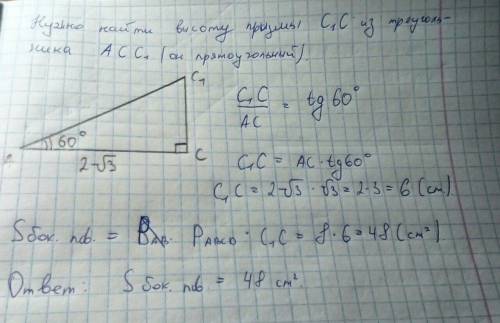 Нужно найти высоту призмы C₁C из треуголь-
ника ACC₁ (он прямоугольный).
C₁
60°
C
2√3
C₁C / AC = tg 60°
C₁C = AC · tg 60°
C₁C = 2√3 · √3 = 2·3 = 6 (см)
Sбок. пов. = Pавсд · C₁C = 8·6 = 48 (см²)
Ответ: Sбок. пов. = 48 см².